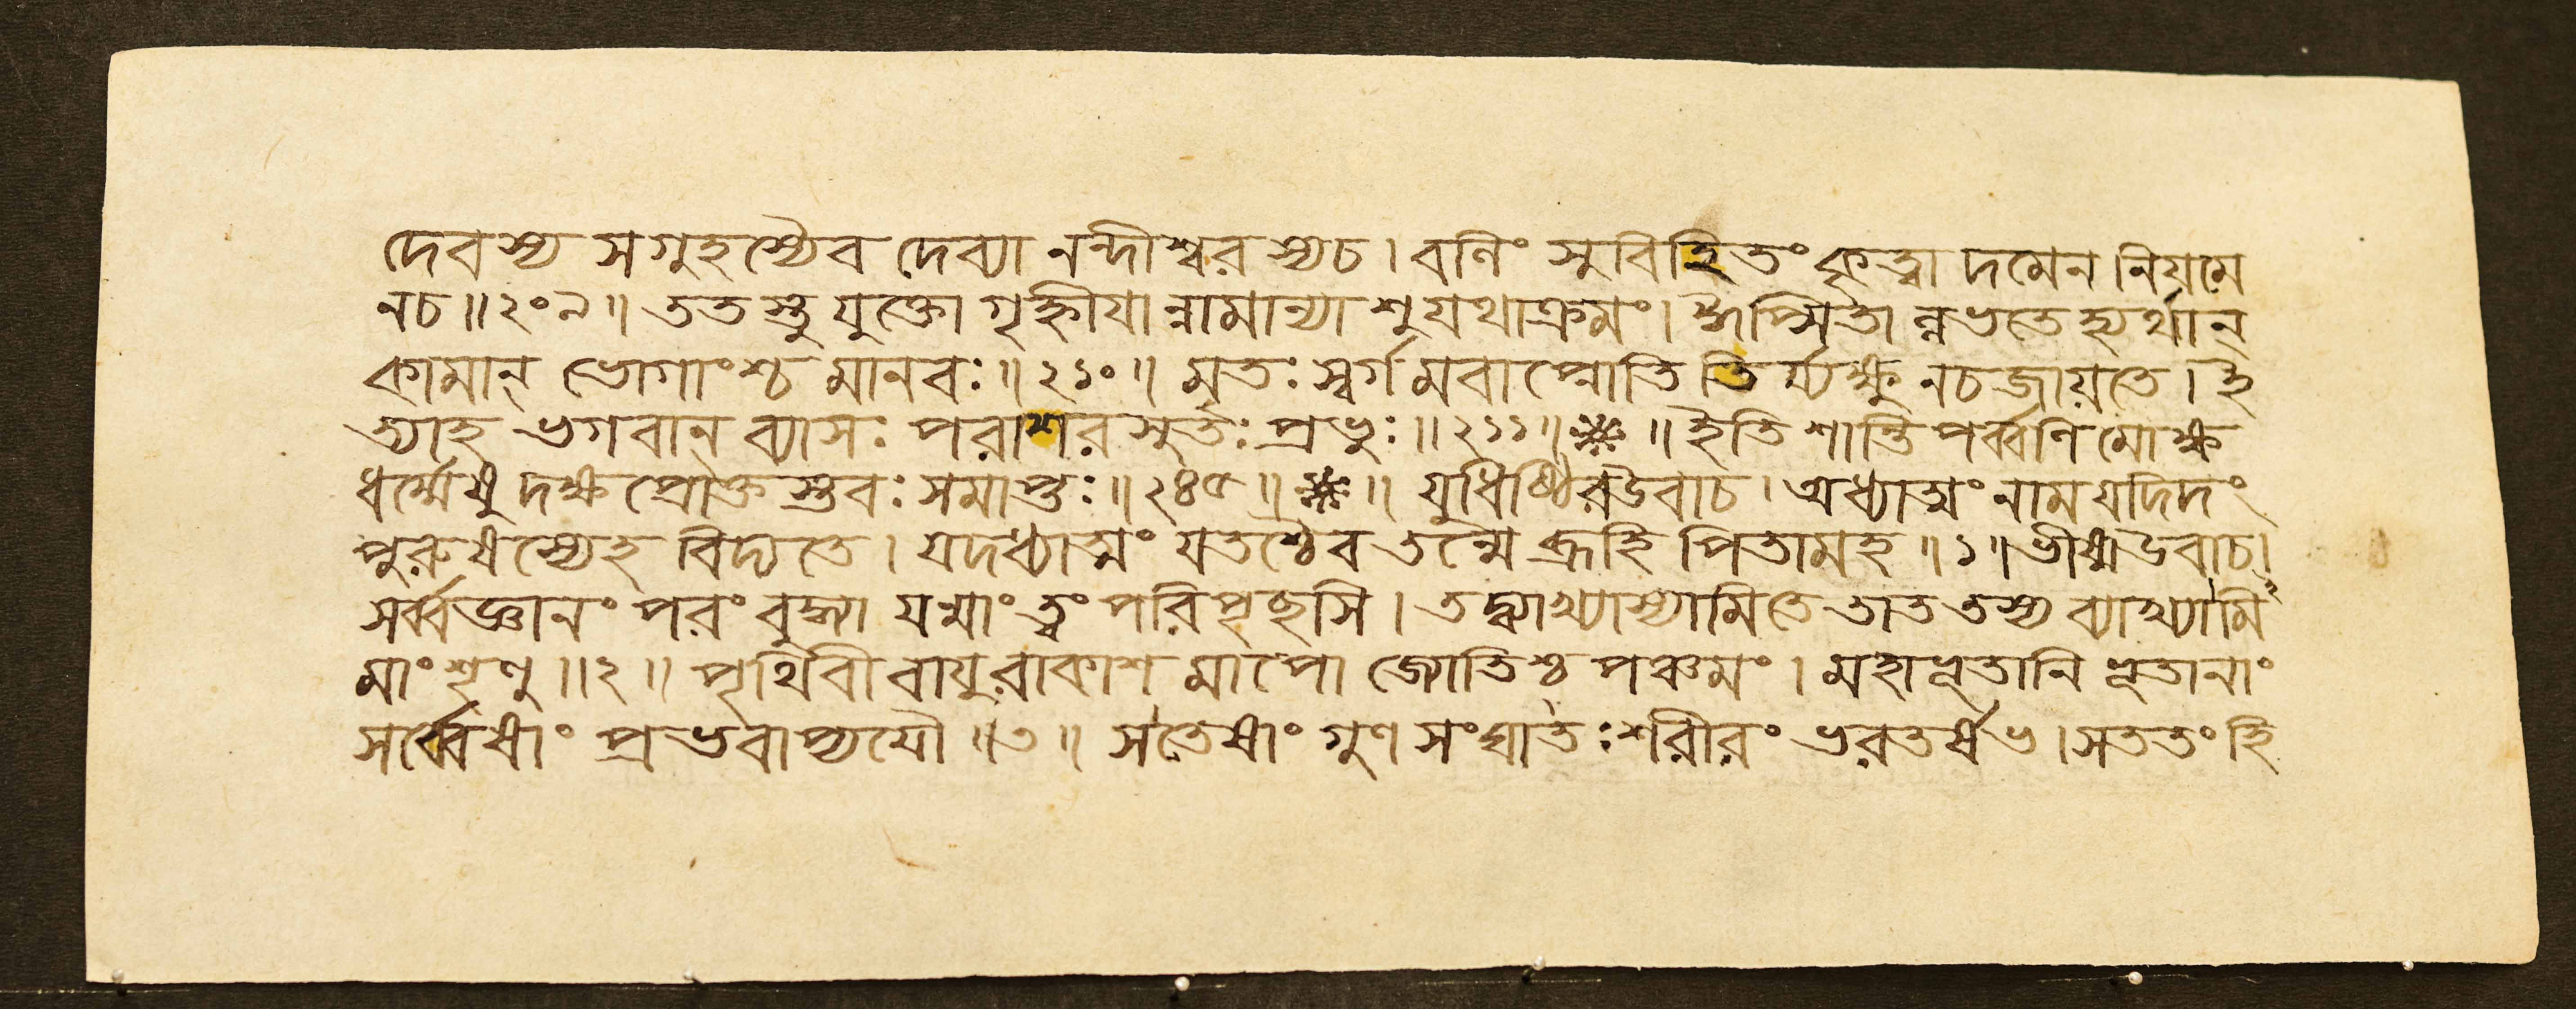 দেবস্য সগুহস্যৈব দেব্যা নন্দীশ্বরস্যচ। বলিং সুবিহিতং কৃত্বা দমেন নিয়মে
নচ॥২০৯॥ ততস্তু যুক্তো গৃহ্নীযান্নামান্যাশুযথাক্রমং। ঈপ্সিতাল্লভতেহ্যর্থান্
কামান্ ভোগাংশ্চ মানবঃ॥২১০॥ মৃতঃ স্বর্গমবাপ্নোতি তির্য্যক্ষু নচজায়তে। ই
ত্যাহ ভগবান ব্যাসঃ পরাশরসুতঃ প্রভুঃ॥২১১॥❋॥ইতি শান্তিপর্ব্বণি মোক্ষ
ধর্ম্মেষু দক্ষপ্রোক্তস্তবঃ সমাপ্তঃ॥২৪৫॥❋॥ যুধিষ্ঠিরউবাচ। অধ্যাত্মং নাম যদিদং
পুরুষস্যেহ বিদ্যতে। যদধ্যাত্মং যতশ্চৈব তন্মে ব্রূহি পিতামহ॥১॥ভীষ্মউবাচ।
সর্ব্বজ্ঞানং পরং বুদ্ধ্যা যন্মাং ত্বং পরিপৃচ্ছসি। তদ্ব্যাখ্যাস্যামিতে তাত তস্য ব্যাখ্যামি
মাং শৃণু॥২॥ পৃথিবী বায়ুরাকাশমাপো জ্যোতিশ্চ পঞ্চমং। মহাভূতানি ভূতানাং
সর্ব্বেষাং প্রভবাপ্যযৌ॥৩॥ সতেষাং গুণসংঘাতঃ শরীরং ভরতর্ষভ। সততং হি